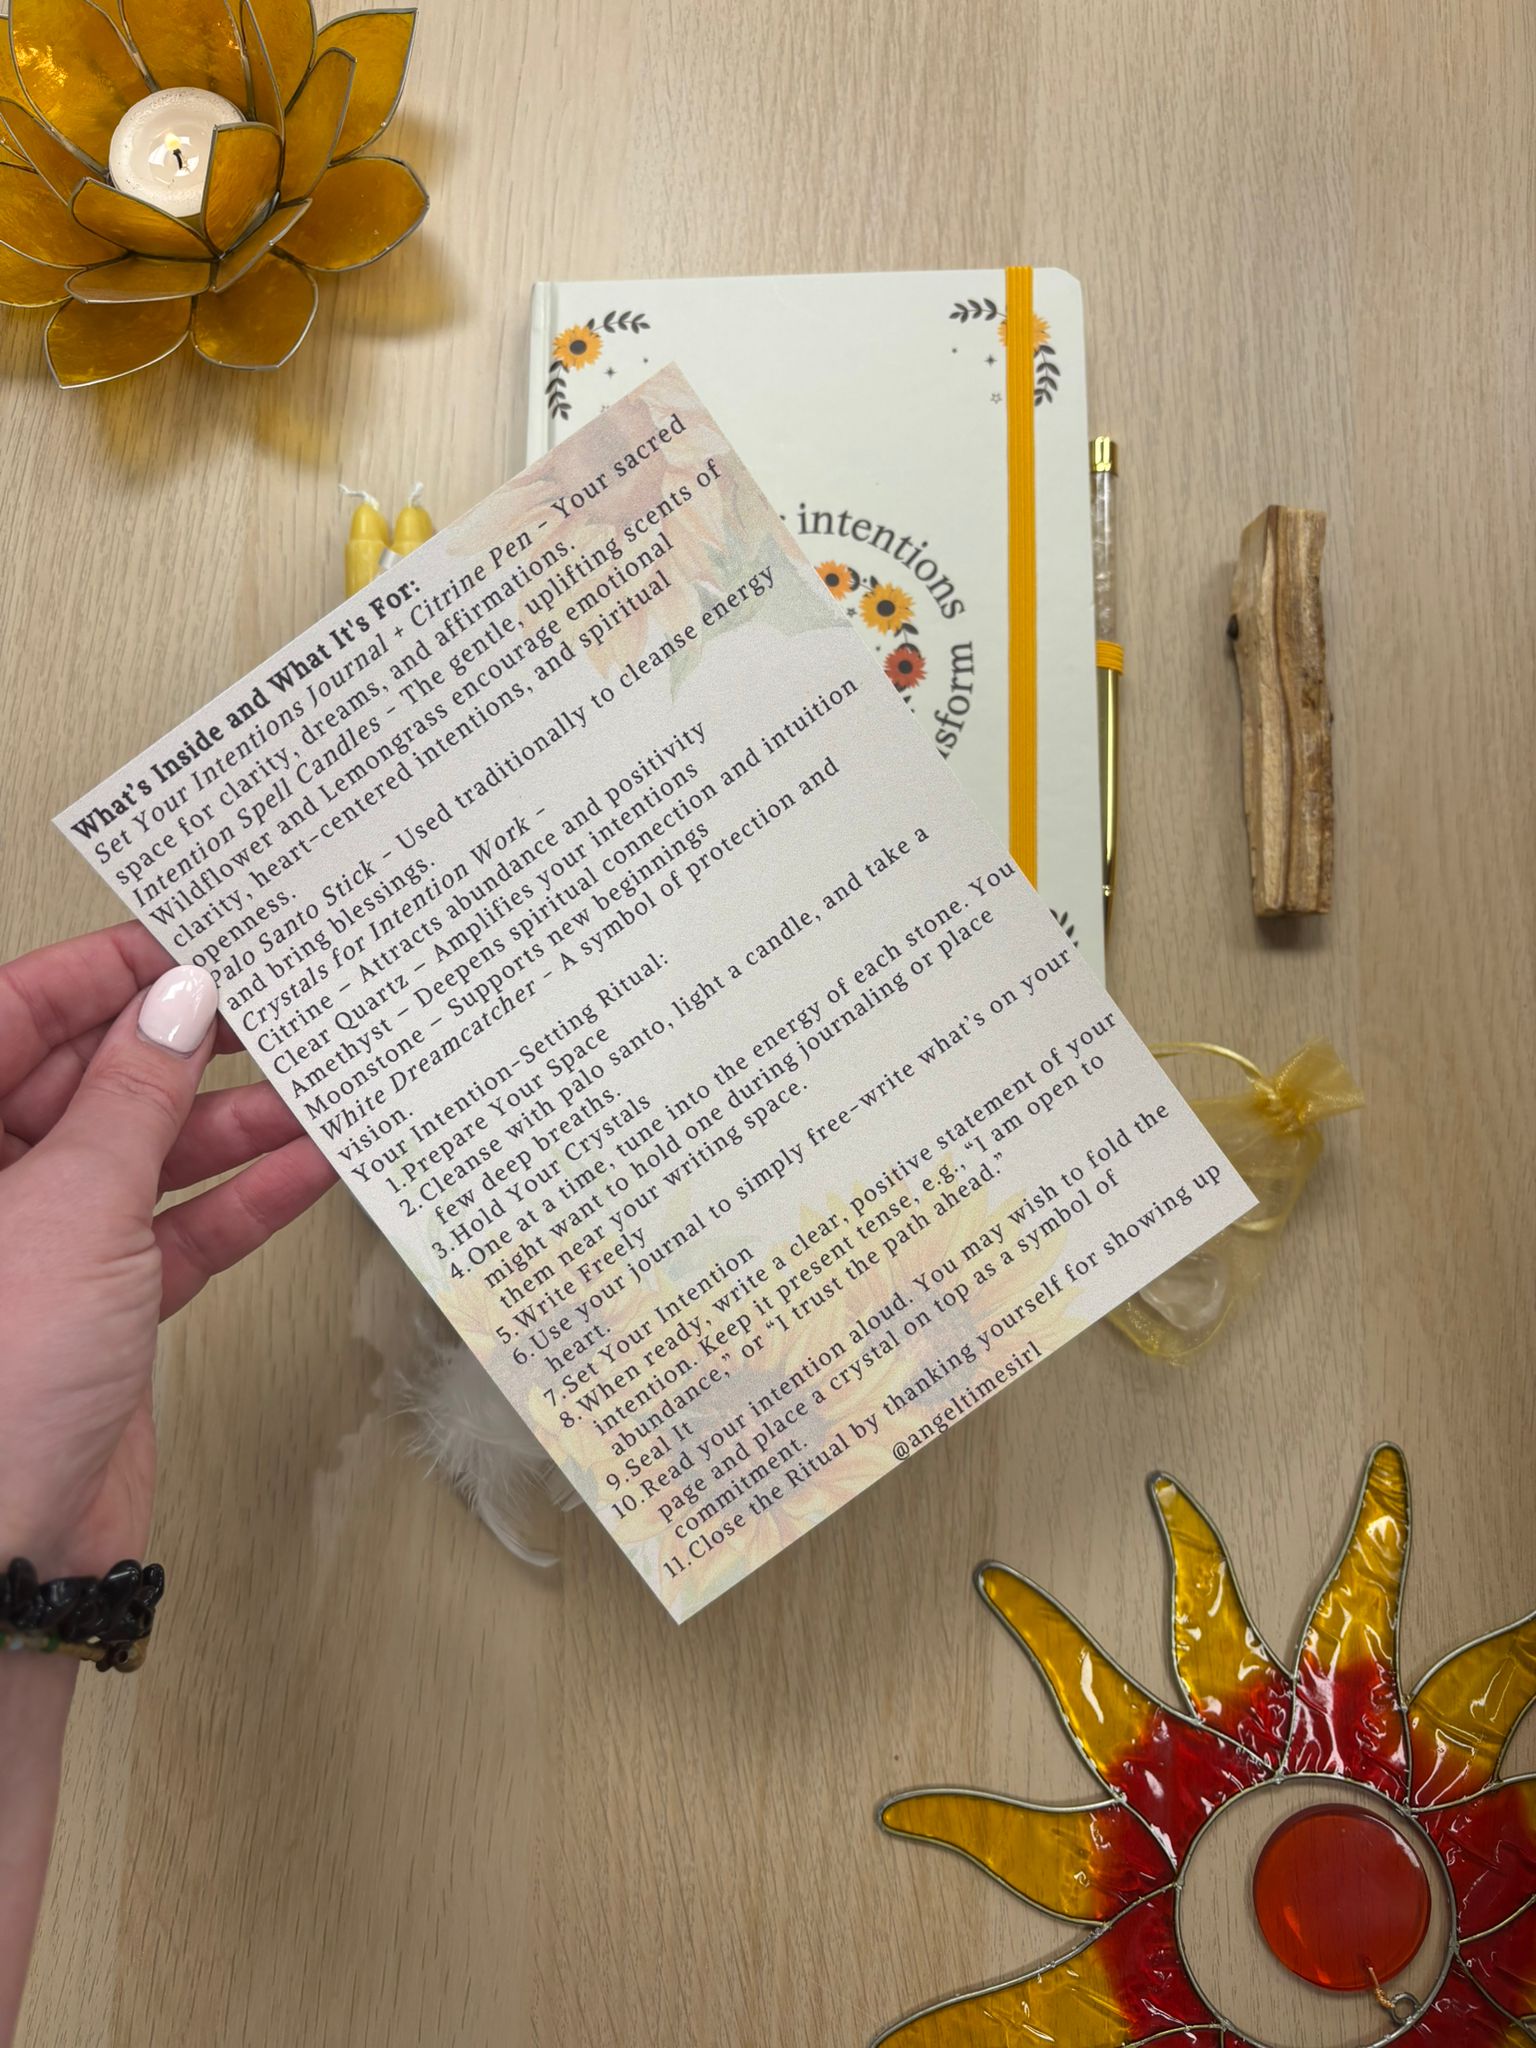 What's Inside and What It's For:
Set Your Intentions Journal + Citrine Pen - Your sacred
space for clarity, dreams, and affirmations.
Intention Spell Candles - The gentle, uplifting scents of
Wildflower and Lemongrass encourage emotional
clarity, heart-centered intentions, and spiritual
openness.
Palo Santo Stick - Used traditionally to cleanse energy
and bring blessings.
Crystals for Intention Work -
Citrine - Attracts abundance and positivity
Clear Quartz - Amplifies your intentions
Amethyst - Deepens spiritual connection and intuition
Moonstone - Supports new beginnings
White Dreamcatcher - A symbol of protection and
vision.
Your Intention-Setting Ritual:
1. Prepare Your Space
2. Cleanse with palo santo, light a candle, and take a
few deep breaths.
3. Hold Your Crystals
4. One at a time, tune into the energy of each stone. You
might want to hold one during journaling or place
them near your writing space.
5. Write Freely
6. Use your journal to simply free-write what's on your
heart.
7. Set Your Intention
8. When ready, write a clear, positive statement of your
intention. Keep it present tense, e.g., “I am open to
abundance,” or “I trust the path ahead.”
9. Seal It
10. Read your intention aloud. You may wish to fold the
page and place a crystal on top as a symbol of
commitment.
11. Close the Ritual by thanking yourself for showing up
@angeltimesirl
intentions